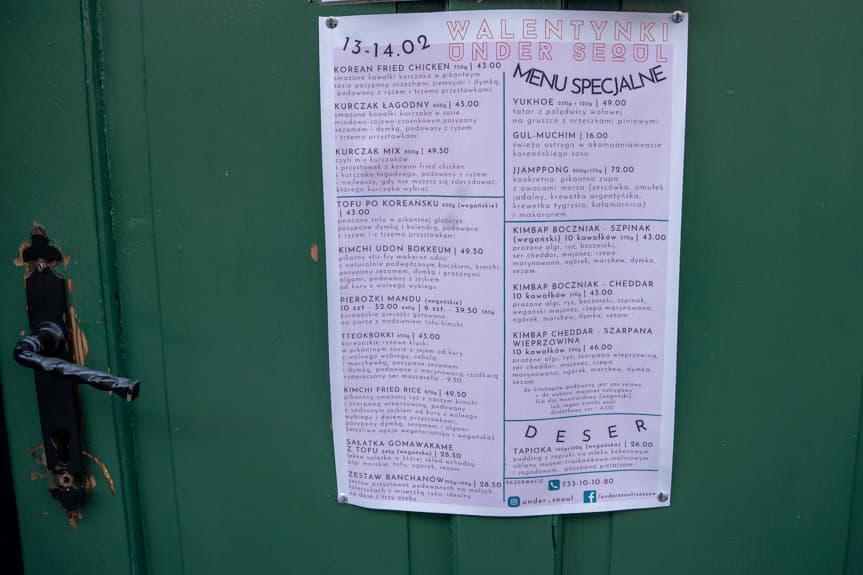 WALENTYNKI
UNDER SEOUL
13-14.02
KOREAN FRIED CHICKEN 750g | 43.00
smażone kawałki kurczaka w pikantnym
sosie posypany orzechami ziemnymi i dymką,
podawany z ryżem i trzema przystawkami
KURCZAK ŁAGODNY 600g | 43.00
smażone kawałki kurczaka w sosie
miodowo-sojowo-czosnkowym, posypany
sezamem i dymką, podawany z ryżem
i trzema przystawkami
KURCZAK MIX 600g | 49.50
czyli mix kurczaków
i przystawek z korean fried chicken
i kurczaka łagodnego, podawany z ryżem
i najlepszy, gdy nie możesz się zdecydować,
którego kurczaka wybrać
TOFU PO KOREAŃSKU 430g (wegańskie)
| 43.00
smażone tofu w pikantnej glazurze,
posypane dymką i kolendrą, podawane
z ryżem i z trzema przystawkami
KIMCHI UDON BOKKEUM | 49.50
pikatny stir-fry makaron udon
z naturalnie podwędzanym boczkiem, kimchi,
posypany sezamem, dymką i prażonymi
algami, podawany z jajkiem
od kury z wolnego wybiegu
PIEROŻKI MANDU (wegańskie)
10 szt - 52.00 | 6 szt. - 39.50
koreańskie pierożki gotowane
na parze z nadzieniem tofu-kimchi
TTEOKBOKKI 450g | 43.00
koreańskie ryżowe kluski
w pikantnym sosie z jajem od kury
z wolnego wybiegu, cebulą
i marchewką, posypane sezamem
i dymką, podawane z marynowaną rzodkwią
+zapieczony ser mozzarella - 9.50
KIMCHI FRIED RICE 670g | 49.50
pikantny smażony ryż z naszym kimchi
i szarpaną wieprzowiną, podawany
z sadzonym jajkiem od kury z wolnego
wybiegu i dwiema przystawkami,
posypany dymką, sezamem i algami
(możliwa opcja wegetariańska i wegańska)
SAŁATKA GOMAWAKAME
Z TOFU 245g (wegańska) | 28.50
lekka sałatka w której skład wchodzą:
algi morskie, tofu, ogórek, sezam
ZESTAW BANCHANÓW 150g+150g | 28.50
zestaw przystawek podawanych na małych
talerzykach z miseczką ryżu, idealny
na dwie / trzy osoby
MENU SPECJALNE
YUKHOE 230g + 120g | 49.00
tatar z polędwicy wołowej
na gruszce z orzeszkami piniowymi
GUL-MUCHIM | 16.00
świeża ostryga w akompaniamencie
koreańskiego sosu
JJAMPPONG 600g+170g | 72.00
konkretna, pikantna zupa
z owocami morza (sercówka, omułek
jadalny, krewetka argentyńska,
krewetka tygrysia, kałamarnica)
i makaronem
KIMBAP BOCZNIAK - SZPINAK
(wegański) 10 kawałków 370g | 43.00
prażone algi, ryż, boczniaki,
ser cheddar, majonez, rzepa
marynowana, ogórek, marchew, dymka,
sezam
KIMBAP BOCZNIAK - CHEDDAR
10 kawałków | 43.00
prażone algi, ryż, boczniaki, szpinak,
wegański majonez, rzepa marynowana,
ogórek, marchew, dymka, sezam
KIMBAP CHEDDAR - SZARPANA
WIEPRZOWINA
10 kawałków | 46.00
prażone algi, ryż, szarpana wieprzowina,
ser cheddar, majonez, rzepa
marynowana, ogórek, marchew, dymka,
sezam
do kimbapów podawany jest sos sojowy
+ do wyboru: majonez ostrygowy
lub dip musztardowy (wegański)
lub vegan kimchi aioli
dodatkowy sos - 4.00
DESER
TAPIOKA 150g+100g (wegańska) | 26.00
pudding z tapioki na mleku kokosowym
oblany musem truskawkowo-malinowym
i jagodowym, posypana pistacjami
REZERWACJE 733-10-10-80
under_seoul /underseoulrzeszow